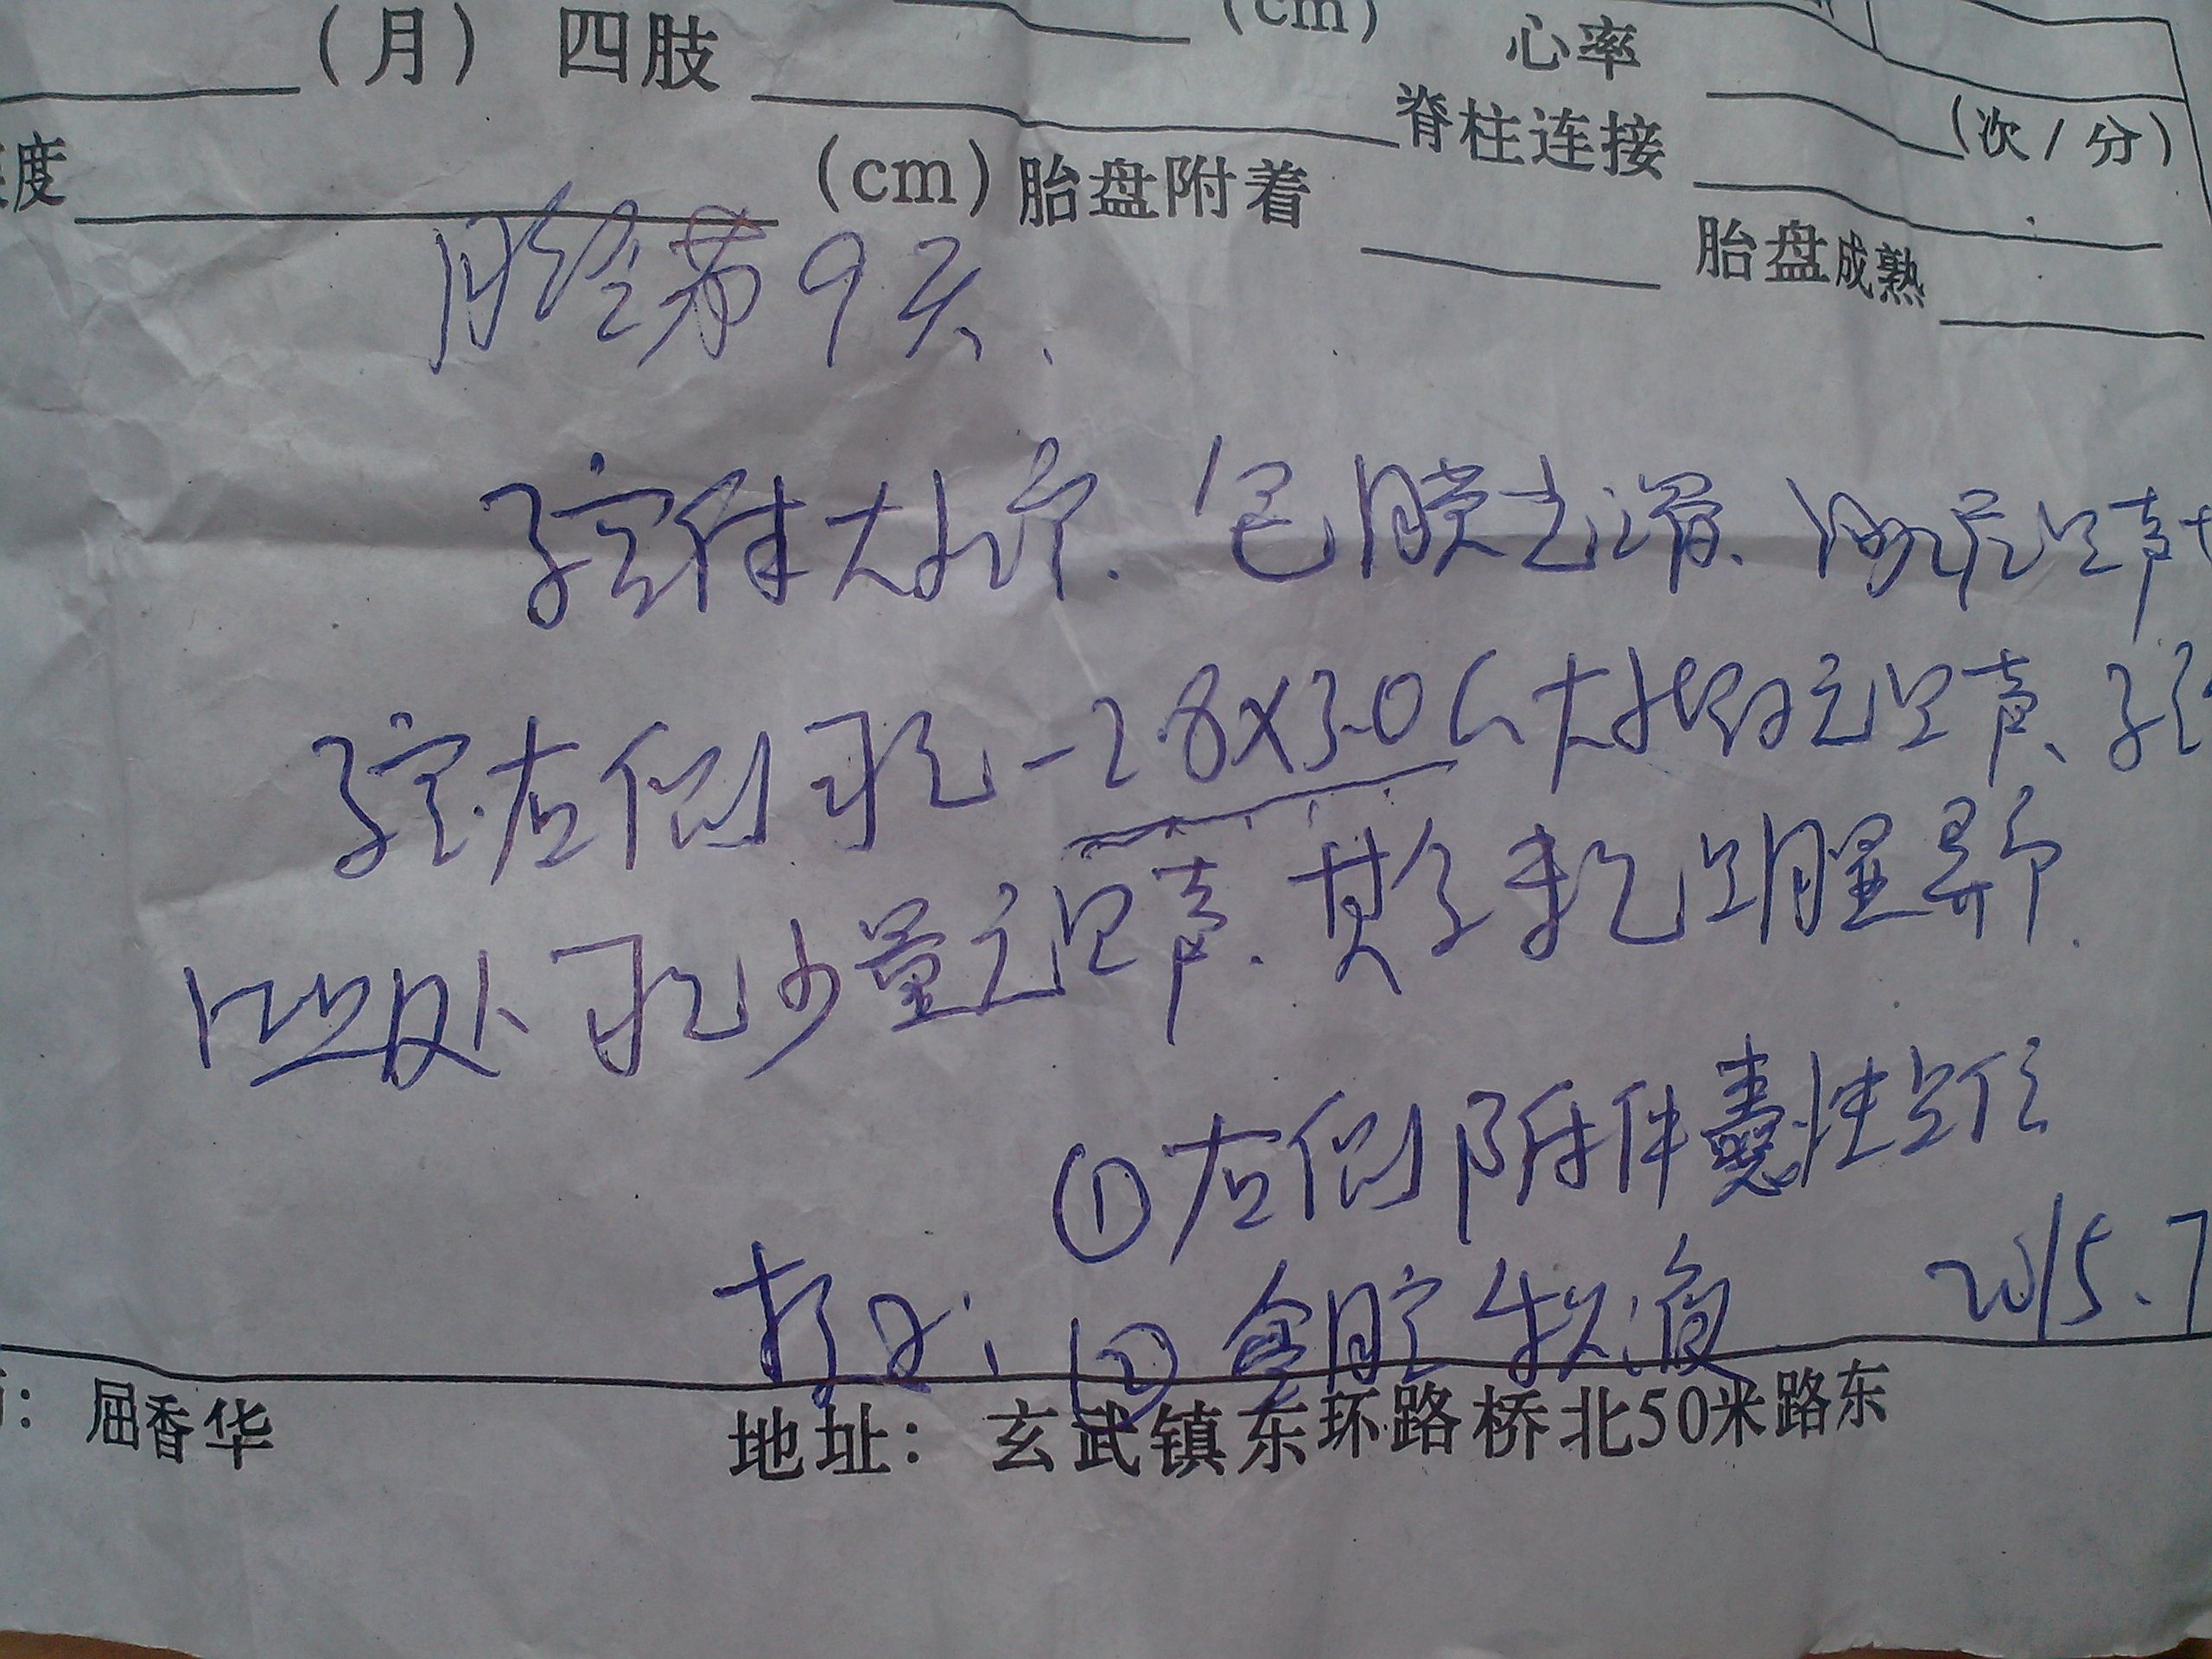 (cm) 心率
(月) 四肢 脊柱连接 (次/分)
度 (cm) 胎盘附着 胎盘成熟
月经第9天.
子宫体大小正常. 包膜光滑、内部回声
子宫右侧可见一2.8×3.0cm大小的无回声、子宫
凹处可见少量无回声. 其余未见明显异常.
①右侧附件囊性占位
提示: ②盆腔积液 2015.7
: 屈香华 地址: 玄武镇东环路桥北50米路东